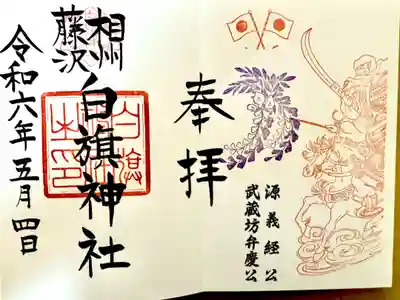 奉拝
源義経公
武蔵坊弁慶公
相州
藤沢
白旗神社
令和六年五月四日